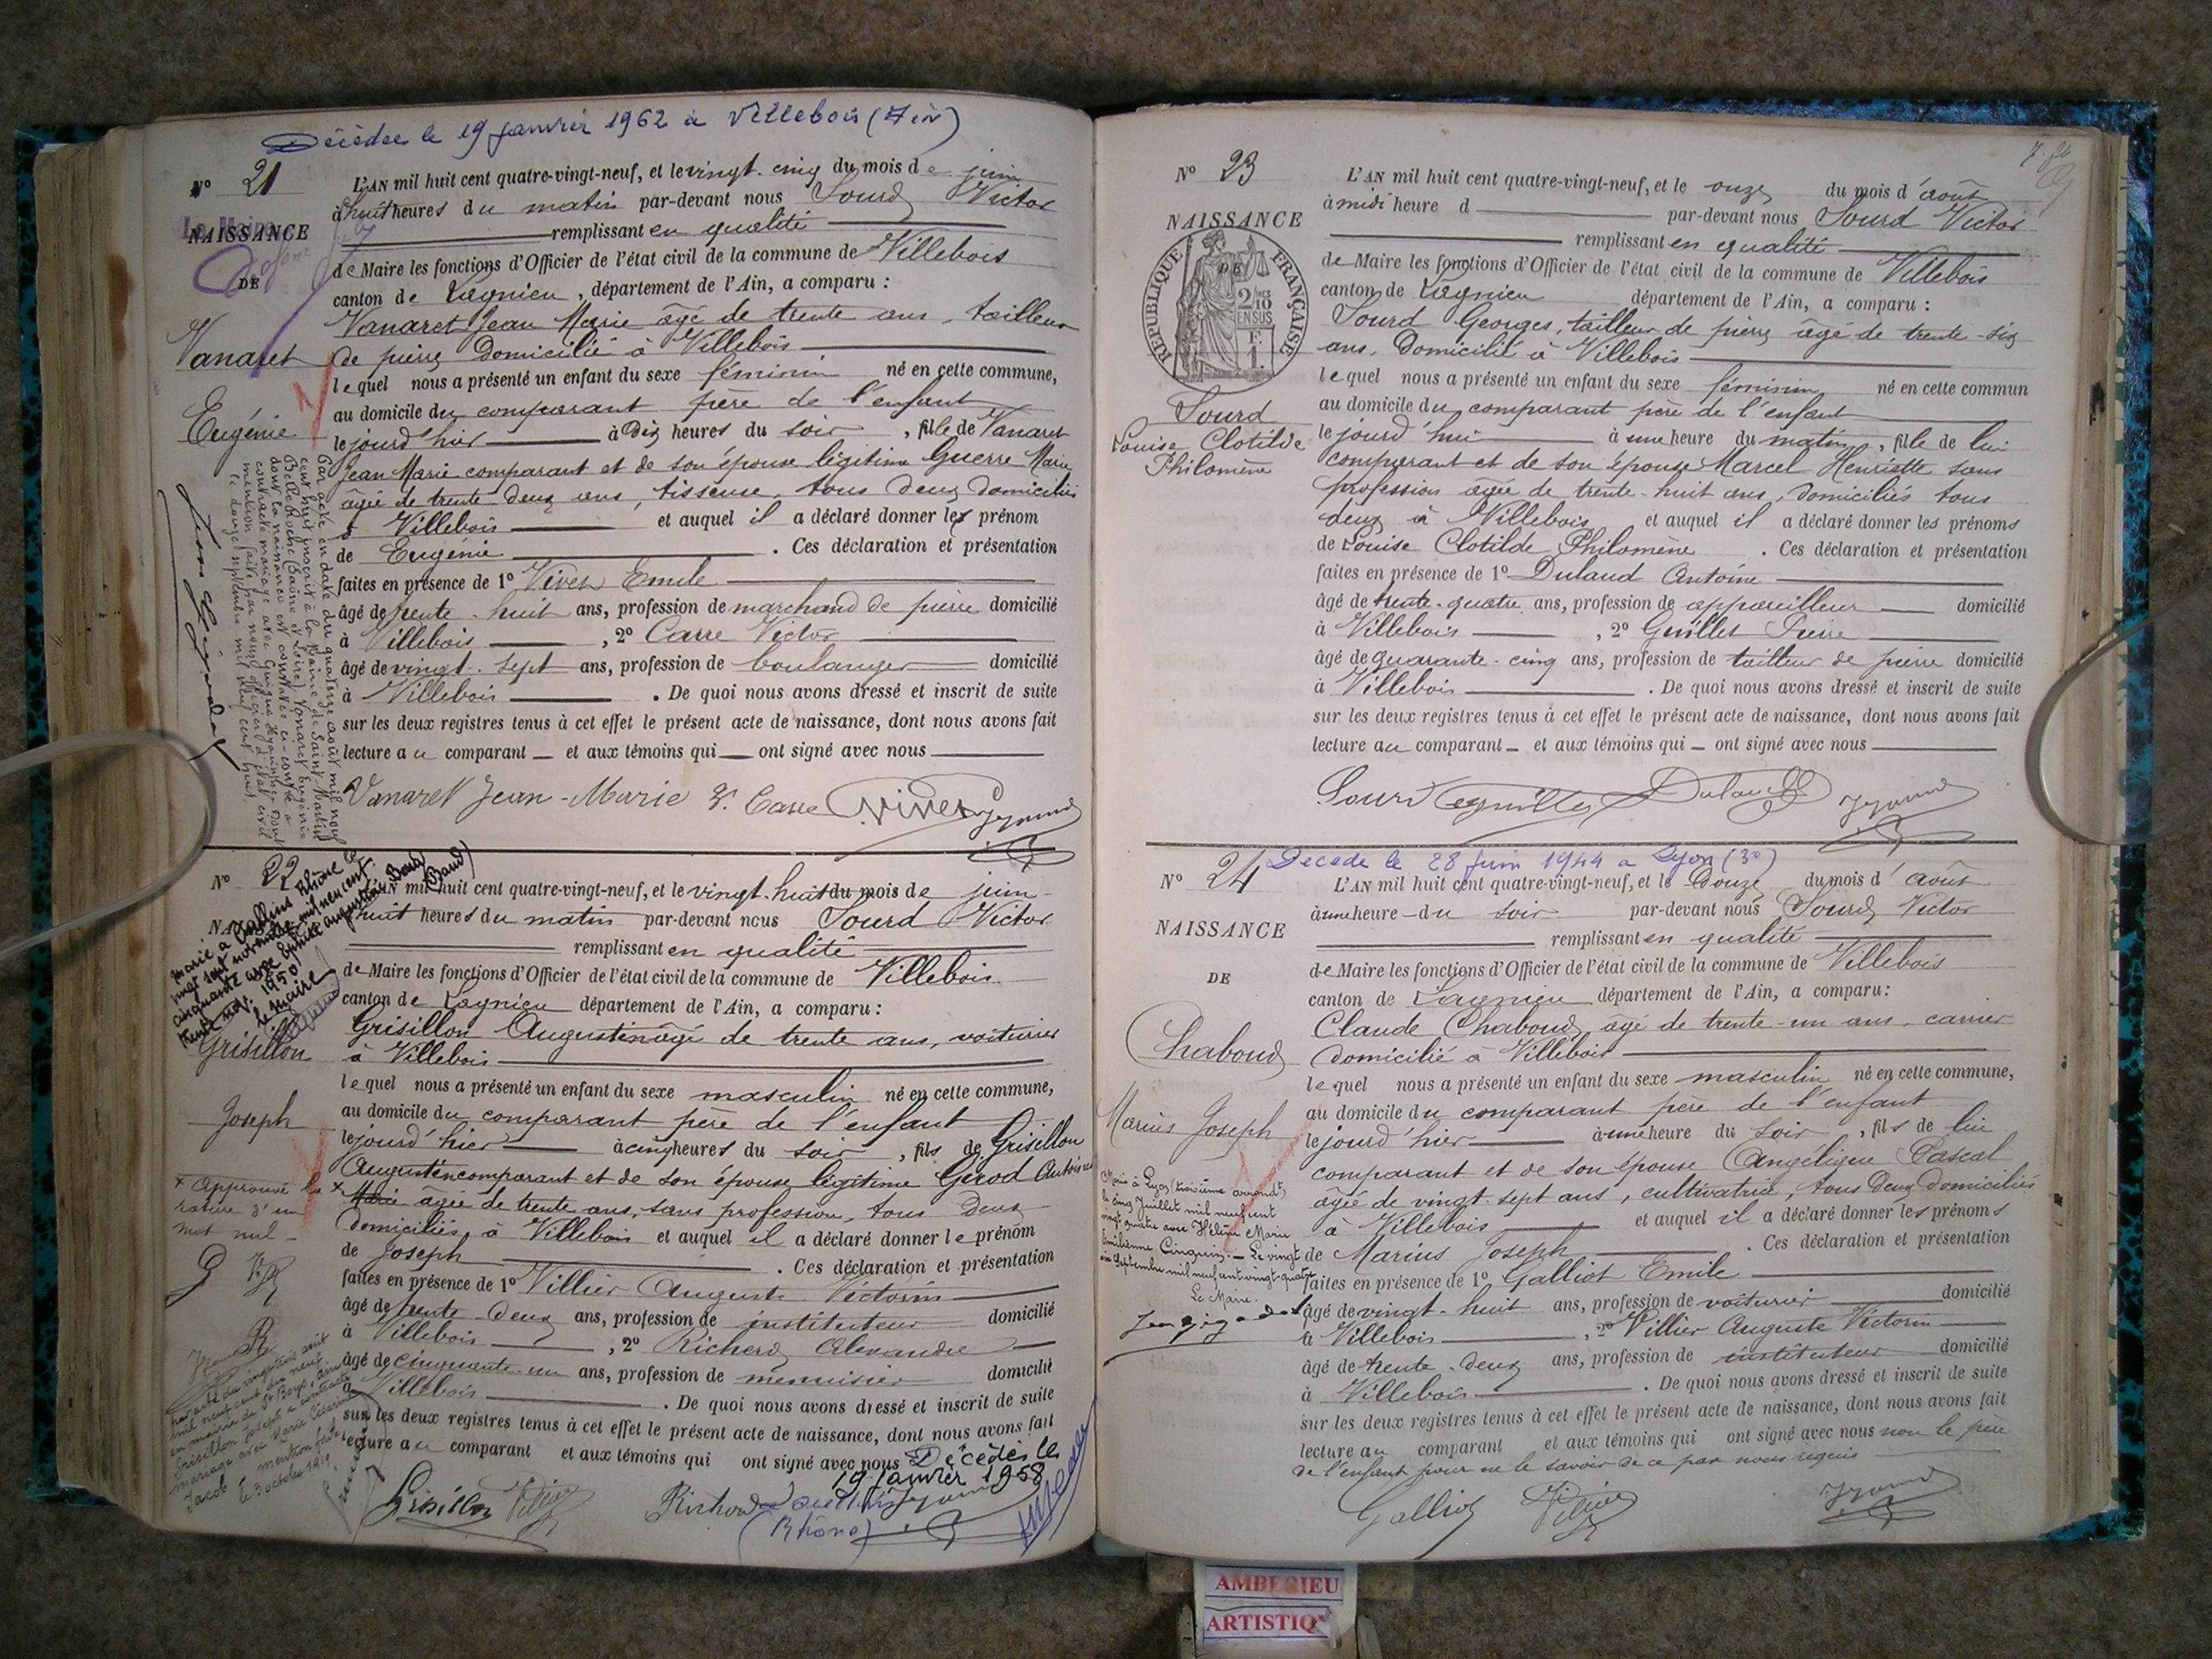 Décédée le 19 Janvier 1962 à Villebois (Ain)
N° 21
NAISSANCE
DE
Vanaret
Eugénie
L'AN mil huit cent quatre-vingt-neuf, et le vingt-cinq du mois de juin
à huit heures du matin par-devant nous Sourd Victor
remplissant en qualité
de Maire les fonctions d'Officier de l'état civil de la commune de Villebois
canton de Lagnieu, département de l'Ain, a comparu :
Vanaret Jean Marie âgé de trente ans, tailleur
de pierre domicilié à Villebois
lequel nous a présenté un enfant du sexe féminin né en cette commune,
au domicile du comparant père de l'enfant
le jourd'hier à dix heures du soir, fille de Vanaret
Jean Marie comparant et de son épouse légitime Guerre Marie
âgée de trente deux ans, tisseuse, tous deux domiciliés
à Villebois et auquel il a déclaré donner les prénom
de Eugénie. Ces déclaration et présentation
faites en présence de 1° Vives Emile
âgé de trente-huit ans, profession de marchand de pierre domicilié
à Villebois, 2° Carre Victor
âgé de vingt-sept ans, profession de boulanger domicilié
à Villebois. De quoi nous avons dressé et inscrit de suite
sur les deux registres tenus à cet effet le présent acte de naissance, dont nous avons fait
lecture au comparant et aux témoins qui ont signé avec nous
Par acte en date du quatorze août mil neuf
cent huit inscrit à la mairie de Saint-Martin
Belleroche (Saône et Loire) Vanaret Eugénie
dont la naissance est constatée ci-contre a
contracté mariage avec
mention faite par nous officier d'état civil
le douze septembre mil neuf cent huit
Vanaret Jean-Marie V. Carre Vives
N° 22
L'AN mil huit cent quatre-vingt-neuf, et le vingt-huit du mois de juin
huit heures du matin par-devant nous Sourd Victor
remplissant en qualité
de Maire les fonctions d'Officier de l'état civil de la commune de Villebois
canton de Lagnieu département de l'Ain, a comparu :
Grisillon Augustin âgé de trente ans, voiturier
à Villebois
lequel nous a présenté un enfant du sexe masculin né en cette commune,
au domicile du comparant père de l'enfant
le jourd'hier à cinq heures du soir, fils de Grisillon
Augustin comparant et de son épouse légitime Gérod
âgée de trente ans, sans profession, tous deux
domiciliés à Villebois et auquel il a déclaré donner le prénom
de Joseph. Ces déclaration et présentation
faites en présence de 1° Villier Auguste Victorin
âgé de trente-deux ans, profession de instituteur domicilié
à Villebois, 2° Richerd Alexandre
âgé de cinquante-un ans, profession de menuisier domicilié
à Villebois. De quoi nous avons dressé et inscrit de suite
sur les deux registres tenus à cet effet le présent acte de naissance, dont nous avons fait
lecture au comparant et aux témoins qui ont signé avec nous
Décédé le
19 Janvier 1958
(Rhône)
Marié à Oullins Rhône le
vingt sept novembre mil neuf cent
cinquante avec
trente nov. 1950
le Maire
Grisillon
Joseph
× Approuvé la
rature d'un
mot nul
Grisillon Joseph a contracté
mariage avec Marie
Jacob mention faite
le 3 octobre 1919
Grisillon
N° 23
NAISSANCE
DE
RÉPUBLIQUE FRANÇAISE
2/10 EN SUS
1 F.
Sourd
Louise Clotilde
Philomène
L'AN mil huit cent quatre-vingt-neuf, et le onze du mois d'août
à midi heure d par-devant nous Sourd Victor
remplissant en qualité
de Maire les fonctions d'Officier de l'état civil de la commune de Villebois
canton de Lagnieu département de l'Ain, a comparu :
Sourd Georges, tailleur de pierre âgé de trente-six
ans, domicilié à Villebois
lequel nous a présenté un enfant du sexe féminin né en cette commun
au domicile du comparant père de l'enfant
le jourd'hui à une heure du matin, fille de lui
comparant et de son épouse Marcel Henriette sans
profession âgée de trente-huit ans, domiciliés tous
deux à Villebois et auquel il a déclaré donner les prénoms
de Louise Clotilde Philomène. Ces déclaration et présentation
faites en présence de 1° Dulaud Antoine
âgé de trente-quatre ans, profession de appareilleur domicilié
à Villebois, 2° Guillet Pierre
âgé de quarante-cinq ans, profession de tailleur de pierre domicilié
à Villebois. De quoi nous avons dressé et inscrit de suite
sur les deux registres tenus à cet effet le présent acte de naissance, dont nous avons fait
lecture au comparant et aux témoins qui ont signé avec nous
Sourd Dulaud
Décédé le 28 Juin 1944 à Lyon (3e)
N° 24
NAISSANCE
DE
Chaboud
Marius Joseph
L'AN mil huit cent quatre-vingt-neuf, et le Douze du mois d'août
à une heure du soir par-devant nous Sourd Victor
remplissant en qualité
de Maire les fonctions d'Officier de l'état civil de la commune de Villebois
canton de Lagnieu département de l'Ain, a comparu :
Claude Chaboud, âgé de trente-un ans, carrier
domicilié à Villebois
lequel nous a présenté un enfant du sexe masculin né en cette commune,
au domicile du comparant père de l'enfant
le jourd'hier à une heure du soir, fils de lui
comparant et de son épouse Angélique Pascal
âgée de vingt-sept ans, cultivatrice, tous deux domiciliés
à Villebois et auquel il a déclaré donner les prénoms
de Marius Joseph. Ces déclaration et présentation
faites en présence de 1° Galliot Emile
âgé de vingt-huit ans, profession de voiturier domicilié
à Villebois, 2° Villier Auguste Victorin
âgé de trente-deux ans, profession de instituteur domicilié
à Villebois. De quoi nous avons dressé et inscrit de suite
sur les deux registres tenus à cet effet le présent acte de naissance, dont nous avons fait
lecture au comparant et aux témoins qui ont signé avec nous non le père
de l'enfant pour ne le savoir de ce par nous requis
Marié à Lyon (troisième arrondt)
le cinq Juillet mil neuf cent
vingt quatre avec Hélène Marie
Emilienne Cinquin. Le vingt
six Septembre mil neuf cent vingt-quatre
Le Maire.
Galliot Villier
AMBERIEU
ARTISTIQ